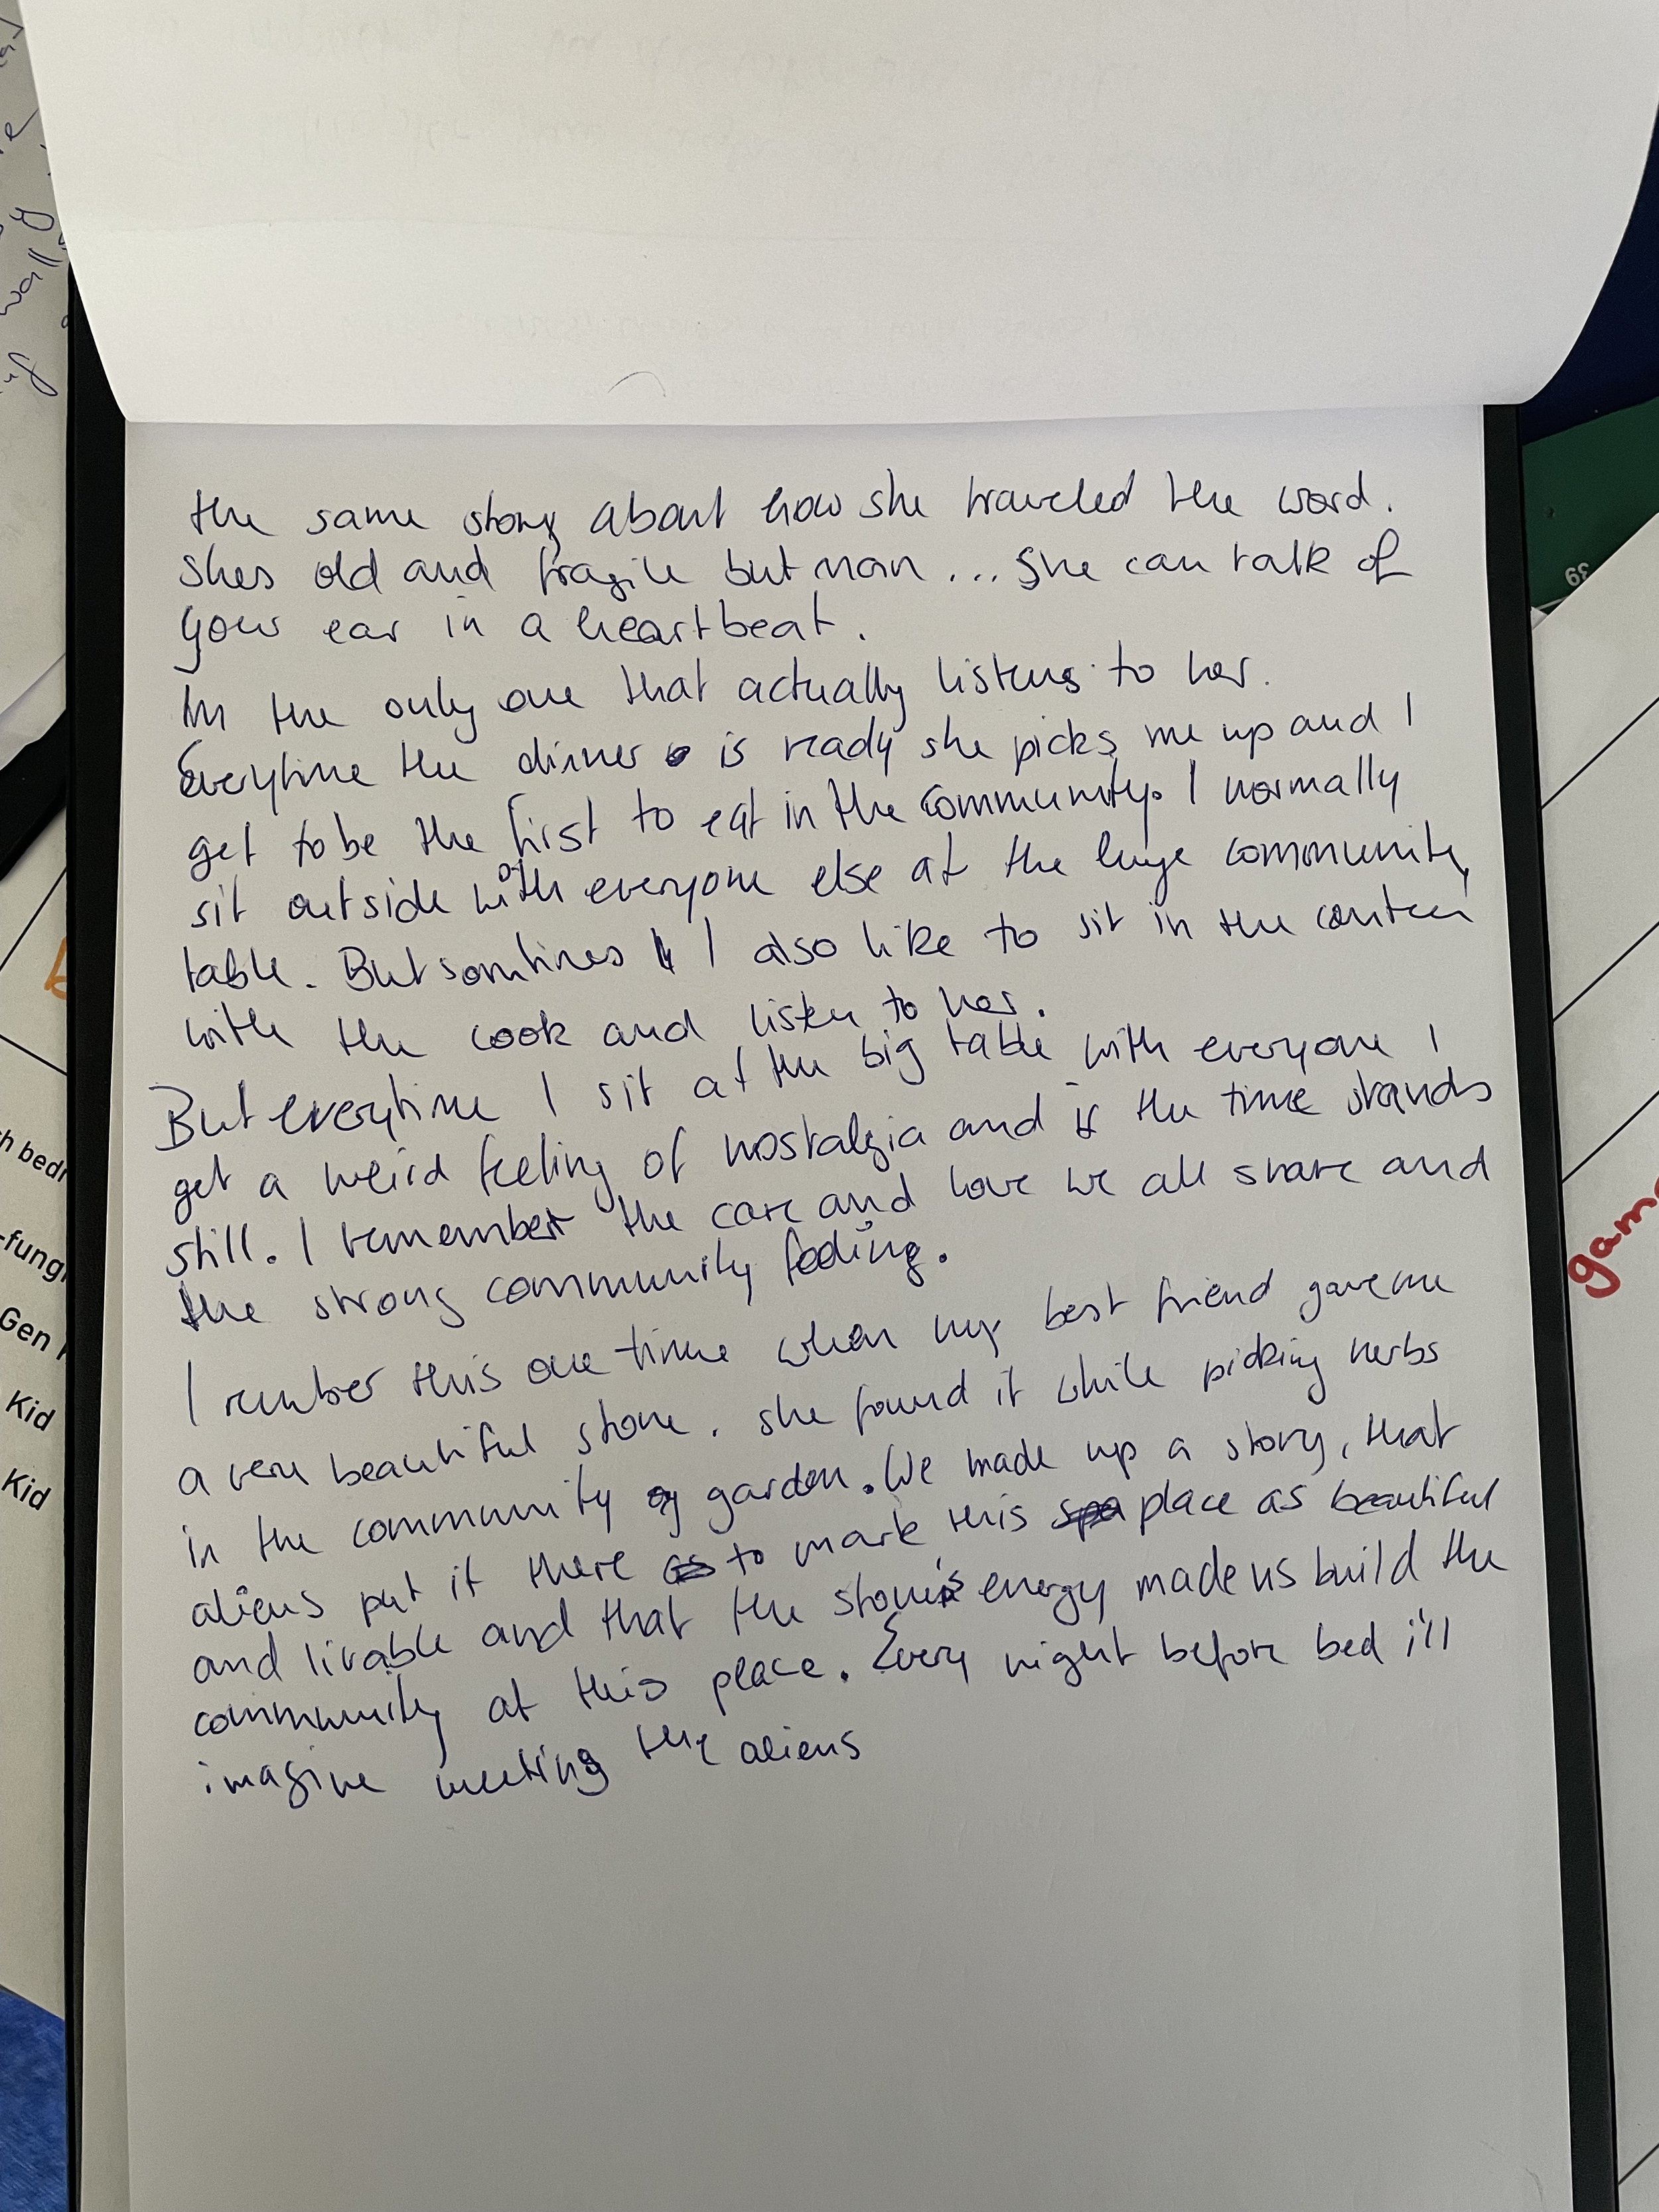 the same story about how she traveled the word.
shes old and fragile but man... She can talk of
your ear in a heartbeat.
Im the only one that actually listens to her.
Everytime the dinner is ready she picks me up and I
get to be the first to eat in the community. I normally
sit outside with everyone else at the huge community
table. But somtimes I also like to sit in the canteen
with the cook and listen to her.
But everytime I sit at the big table with everyone I
get a weird feeling of nostalgia and if the time stands
still. I remember the care and love we all share and
the strong community feeling.
I rember this one time when my best friend gave me
a very beautiful stone. she found it while picking herbs
in the community garden. We made up a story, that
aliens put it there to mark this place as beautiful
and livable and that the stone's energy made us build the
community at this place. Every night before bed i'll
imagine meeting the aliens
wall
39
h bedr
-fungi
Gen
Kid
Kid
game